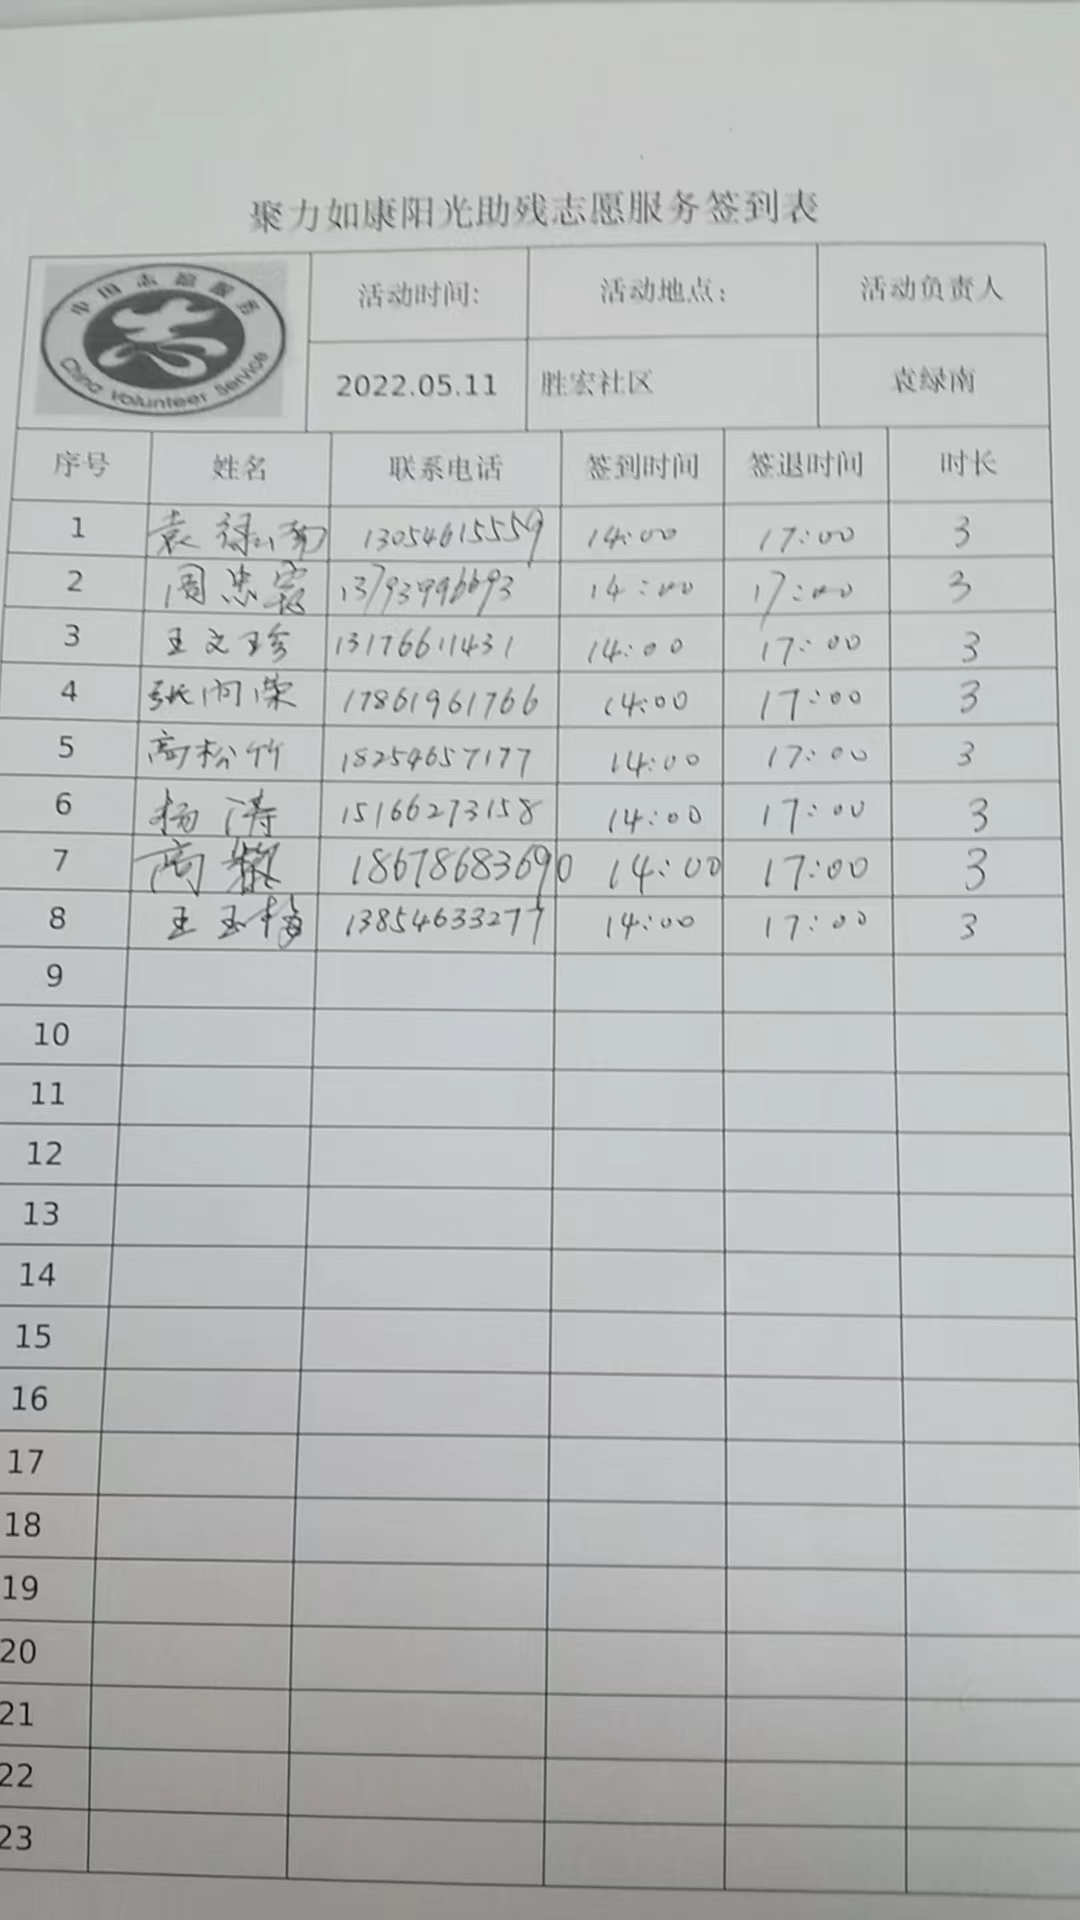 聚力如康阳光助残志愿服务签到表
中国志愿服务
China Volunteer Service
活动时间: 活动地点: 活动负责人
2022.05.11 胜宏社区 袁绿南
序号 姓名 联系电话 签到时间 签退时间 时长
1 袁绿南 13054615559 14:00 17:00 3
2 周忠 13793996693 14:00 17:00 3
3 王文珍 13176611431 14:00 17:00 3
4 张闷荣 17861961766 14:00 17:00 3
5 高松竹 18254657177 14:00 17:00 3
6 杨涛 15166273158 14:00 17:00 3
7 高 18678683690 14:00 17:00 3
8 王玉梅 13854633277 14:00 17:00 3
9
10
11
12
13
14
15
16
17
18
19
20
21
22
23